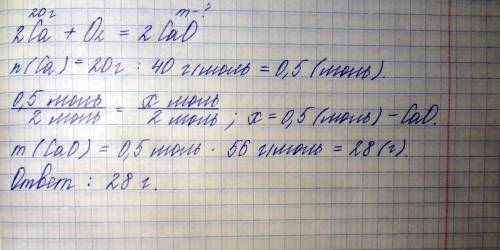 20г m-?
2Ca + O₂ = 2CaO
n(Ca) = 20г : 40 г/моль = 0,5 (моль).
0,5 моль/2 моль = x моль/2 моль ; x = 0,5 (моль) - CaO.
m (CaO) = 0,5 моль · 56 г/моль = 28 (г).
Ответ : 28 г.